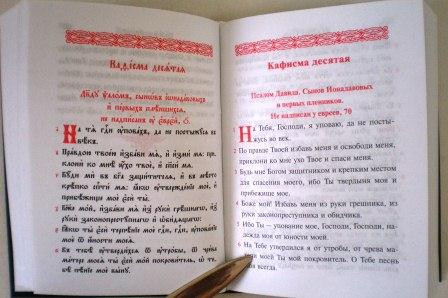 Каѳісма десѧтаѧ
Дв҃ду ѱалом, сынѡв ѡ҆надавовых
и҆ первых плѣншихсѧ,
не надписан ᲂу҆ є҆врей, ѻ҃.
1 На тѧ̀ гдⷭ҇и ᲂу҆повахъ, да не постыжꙋсѧ во
вѣкъ.
2 Правдою твоею и҆збави мѧ̀ и҆ и҆зми мѧ̀: при-
клони ко мнѣ̀ ᲂу҆хо твоѐ, и҆ спаси мѧ̀.
3 Бꙋди ми въ бг҃а защитителѧ, и҆ въ мѣсто
крѣпко спасти мѧ̀: ꙗ҆кѡ ᲂу҆твержденїе моѐ, и҆
прибѣжище моѐ є҆сѝ ты̀.
4 Бж҃е мой, и҆збави мѧ̀ и҆з рꙋки грѣшнагѡ, и҆з
рꙋки законопрестꙋпнагѡ и҆ ѡ҆бидѧщагѡ:
5 ꙗ҆кѡ ты̀ є҆сѝ терпѣнїе моѐ гдⷭ҇и, гдⷭ҇и, ᲂу҆пова-
нїе моѐ ѿ ю҆ности моеѧ̀.
6 Въ тебѣ̀ ᲂу҆твердихсѧ ѿ ᲂу҆тробы, ѿ чрева
матере моеѧ̀ ты̀ є҆сѝ мой покровитель, ѡ҆ те-
бѣ̀ пѣнїе моѐ вынꙋ.
Кафисма десятая
Псалом Давида. Сынов Ионадавовых
и первых пленников.
Не надписан у евреев, 70
1 На Тебя, Господи, я уповаю, да не постыжусь
во век.
2 По правде Твоей избавь меня и освободи меня,
приклони ко мне ухо Твое и спаси меня.
3 Будь мне Богом защитником и крепким местом
для спасения моего, ибо Ты твердыня моя и
прибежище мое.
4 Боже мой! Избавь меня из руки грешника, из
руки законопреступника и обидчика.
5 Ибо Ты – упование мое, Господи, Господи, на-
дежда моя от юности моей.
6 На Тебе утвердился я от утробы, от чрева ма-
тери моей Ты мой покровитель. О Тебе песнь
всегда.